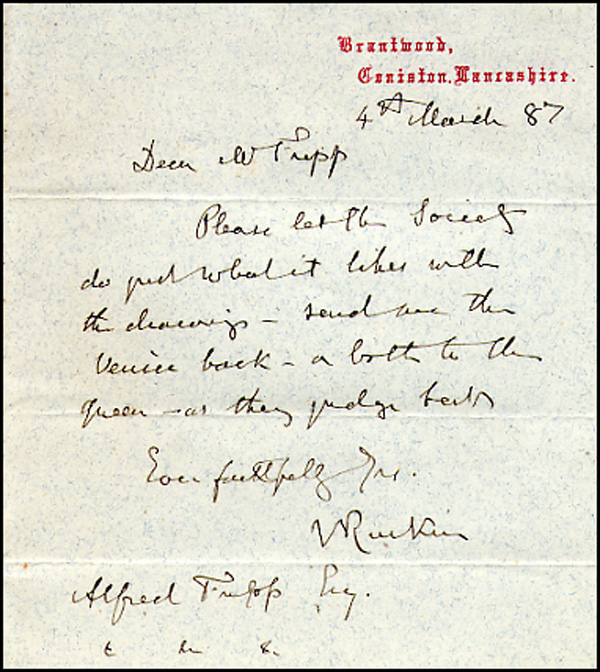 Brantwood,
Coniston. Lancashire.
4th March 87
Dear Mr Fripp
Please let the Society
do just what it likes with
the drawings – send me the
Venice back – or both to the
Queen – as they judge best
Ever faithfully Yrs.
JRuskin
Alfred Fripp Esq.